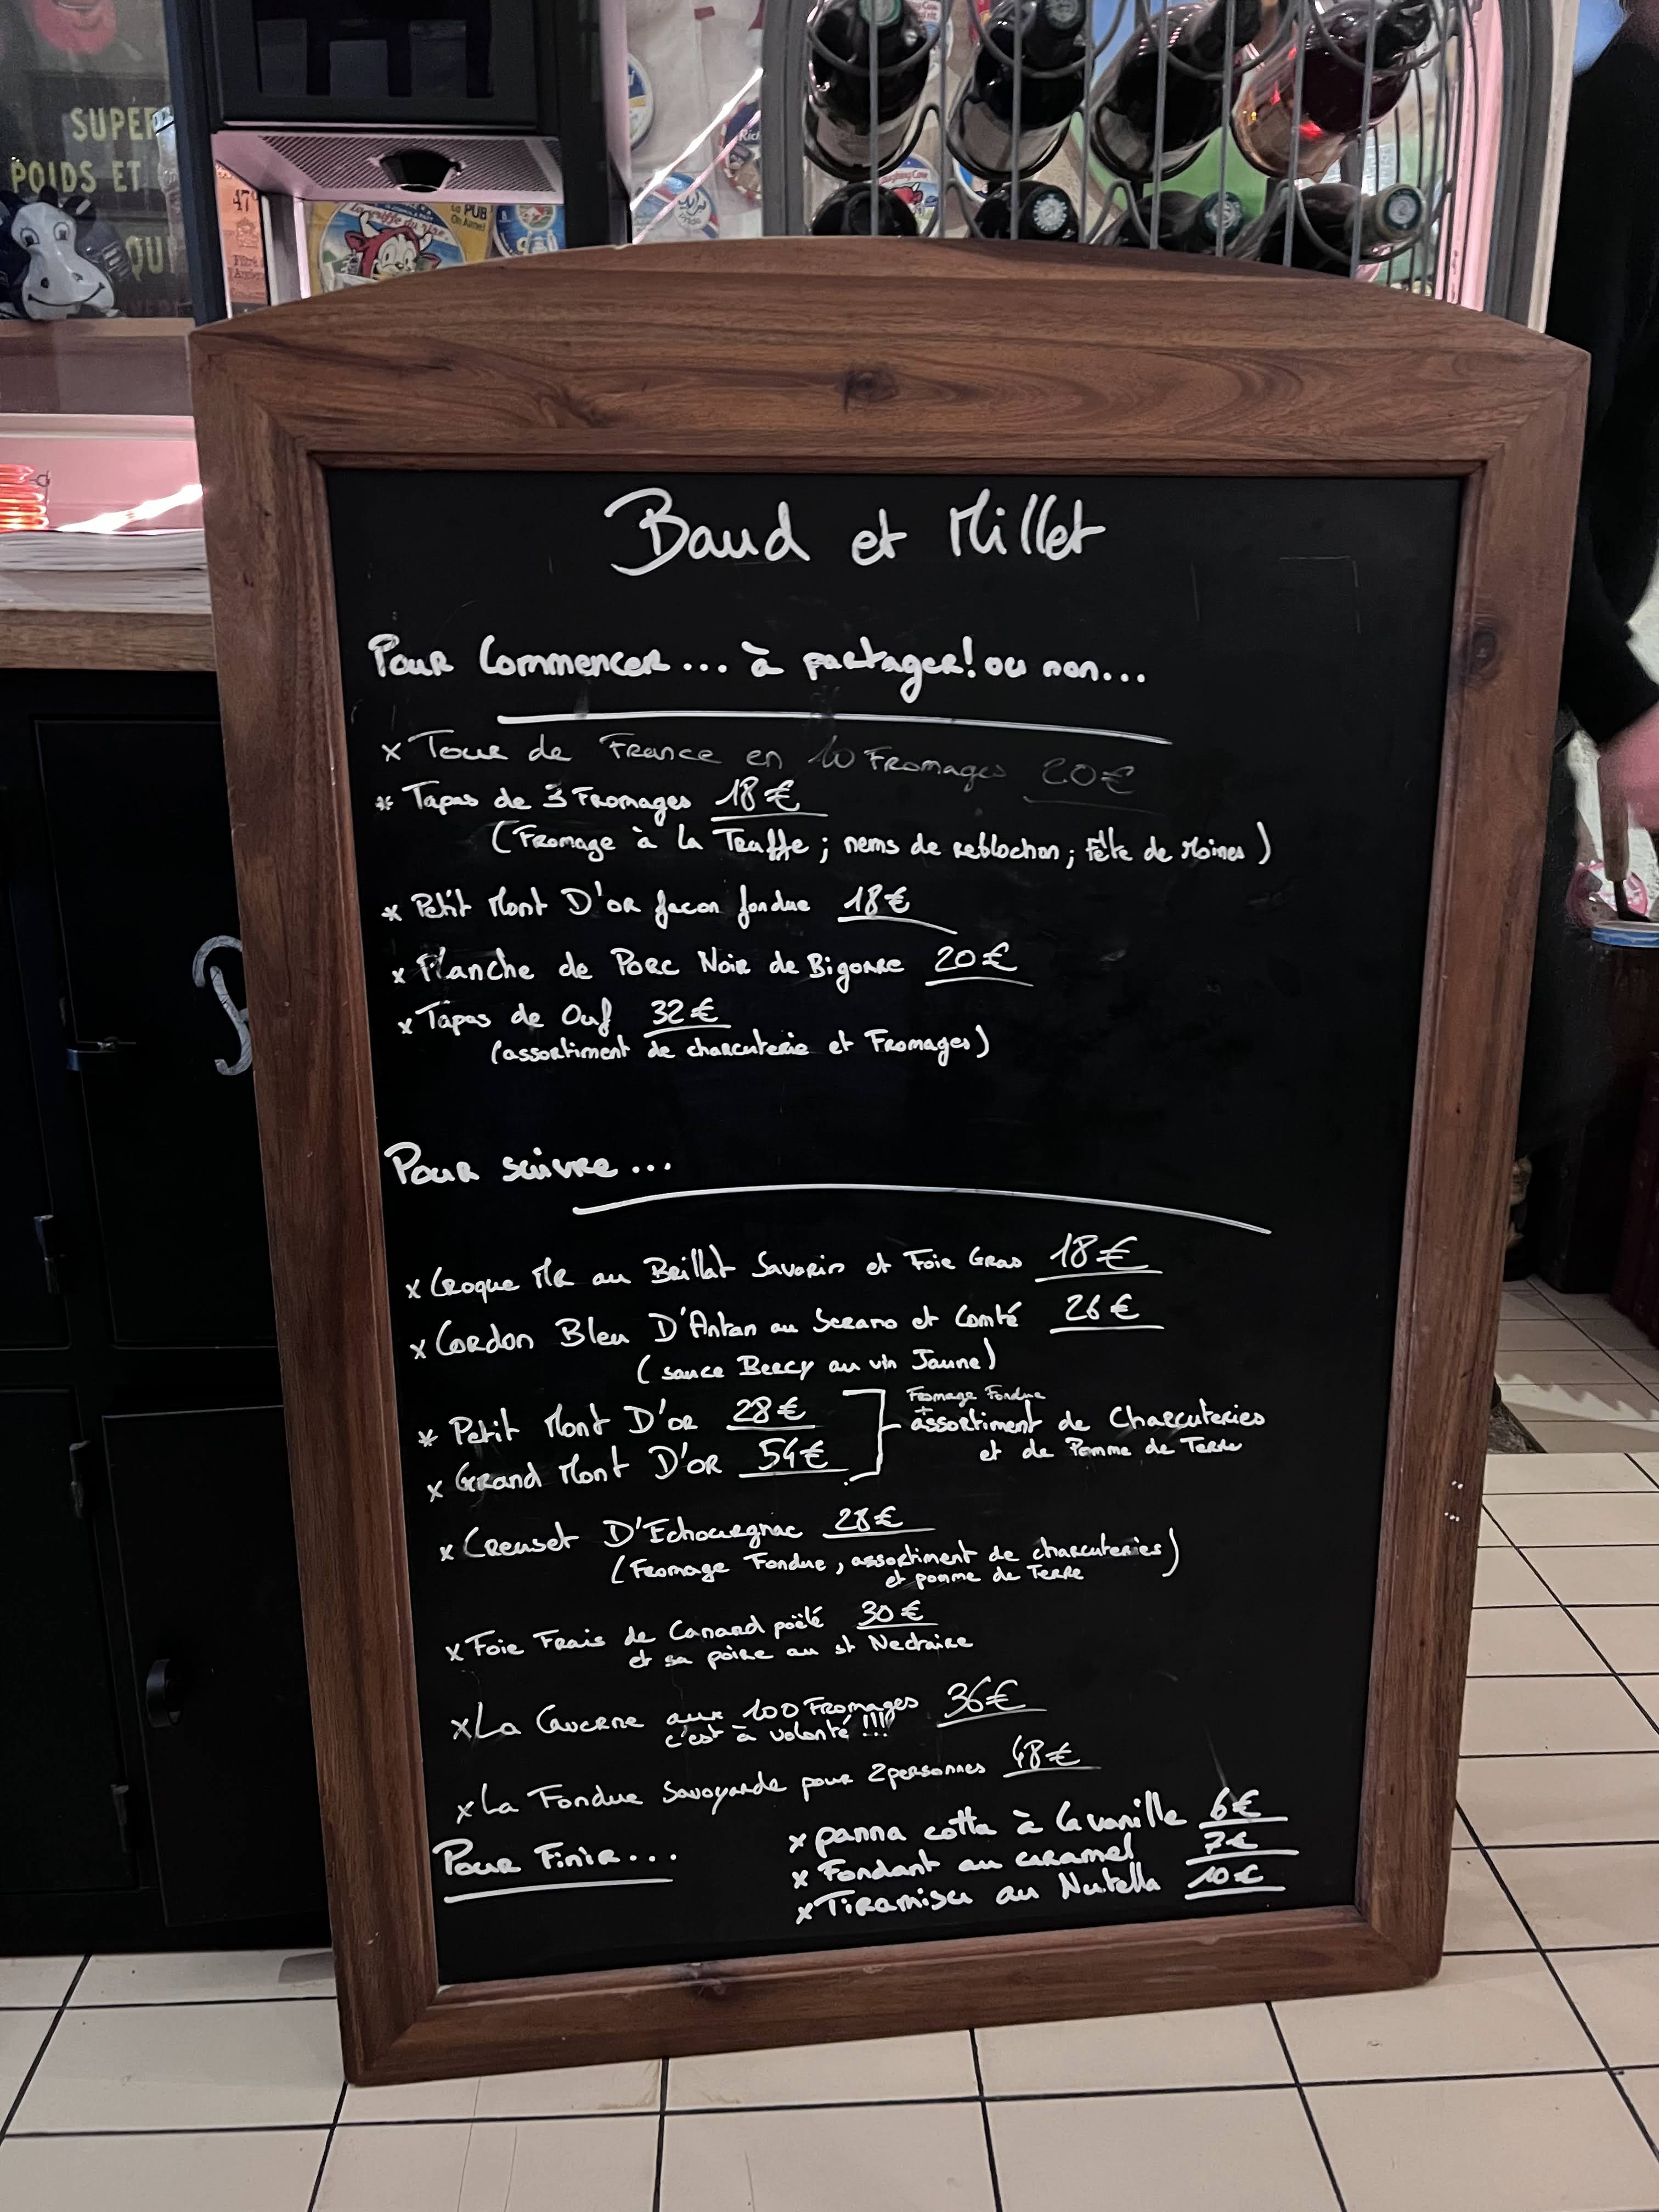 SUPÉR
POIDS ET
QUI
47°
La PUB
Baud et Millet
Pour Commencer... à partager! ou non...
x Tour de France en 10 Fromages 20€
* Tapas de 3 Fromages 18€
(Fromage à la Truffe ; nems de reblochon ; tête de Moines)
* Petit Mont D'or facon fondue 18€
x Planche de Porc Noir de Bigorre 20€
x Tapas de Ouf 32€
(assortiment de charcuterie et Fromages)
Pour suivre...
x Croque Mr au Brillat Savarin et Foie Gras 18€
x Cordon Bleu D'Antan au Serano et Comté 26€
(sauce Bercy au vin Jaune)
* Petit Mont D'or 28€
x Grand Mont D'or 54€
Fromage Fondue
+
assortiment de Charcuteries
et de Pomme de Terre
x Creuset D'Echourgnac 28€
(Fromage Fondue, assortiment de charcuteries)
et pomme de Terre
x Foie Frais de Canard poëlé 30€
et sa poire au st Nectaire
x La Caverne aux 100 Fromages 36€
c'est à volonté !!!
x La Fondue Savoyarde pour 2 personnes 48€
Pour Finir...
x panna cotta à la vanille 6€
x Fondant au caramel 7€
x Tiramisu au Nutella 10€